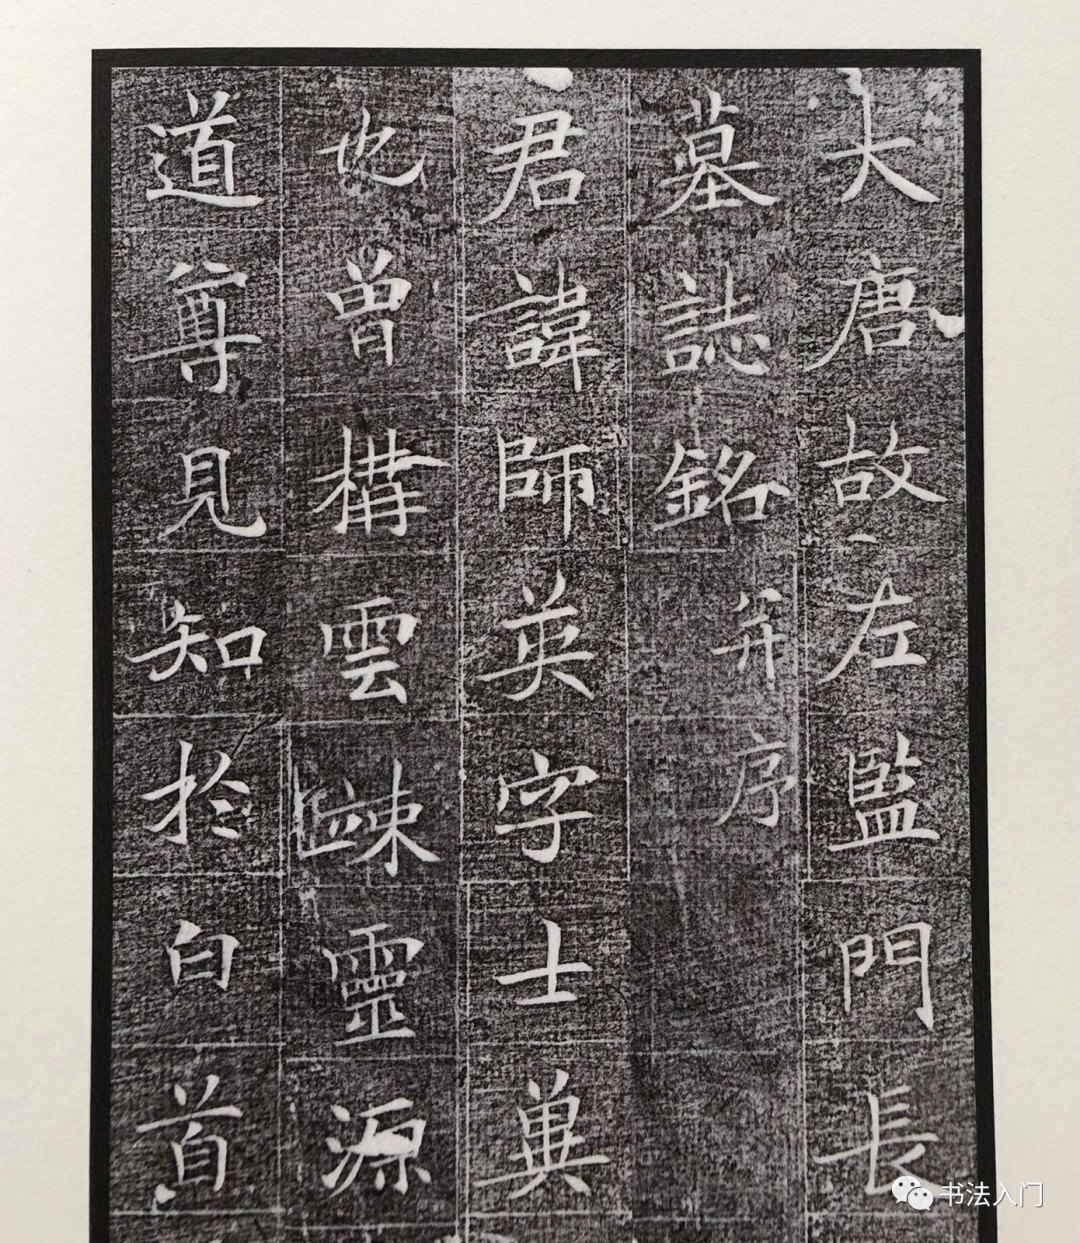 大唐故左監門長
墓誌銘并序
君諱師英字士兾
也曾構雲竦靈源
道尊見知於白首
书法入门